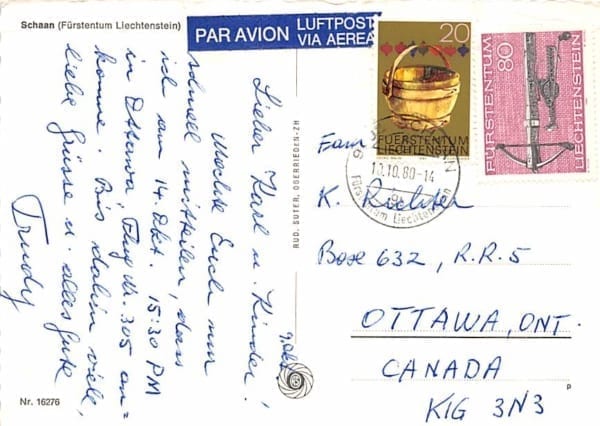 Schaan (Fürstentum Liechtenstein)
PAR AVION
LUFTPOST
VIA AEREA
20
FÜRSTENTUM
LIECHTENSTEIN
FÜRSTENTUM
LIECHTENSTEIN
80
SCHAAN
10.10.80-14
Fürstentum Liechtenstein
9. Okt.
Lieber Karl u. Kinder!
Möchte Euch nur
schnell mitteilen, dass
ich am 14. Okt. 15:30 PM
in Ottawa, Flug Nr. 305 an=
komme. Bis dahin viele,
liebe Grüsse u. alles Gute
Trudy
RUD. SUTER, OBERRIEDEN-ZH
Fam.
K. Richter
Box 632, R.R.5
OTTAWA, ONT.
CANADA
K1G 3N3
Nr. 16276
p